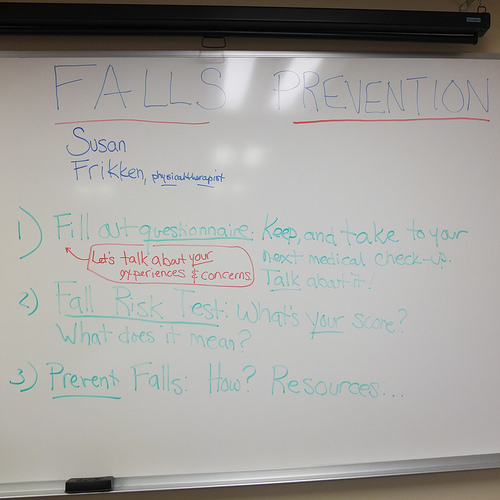 FALLS PREVENTION
Susan
Frikken, physical therapist
1) Fill out questionnaire: Keep, and take to your
next medical check-up.
Talk about it!
Let's talk about your
experiences & concerns.
2) Fall Risk Test: What's your score?
What does it mean?
3) Prevent Falls: How? Resources...